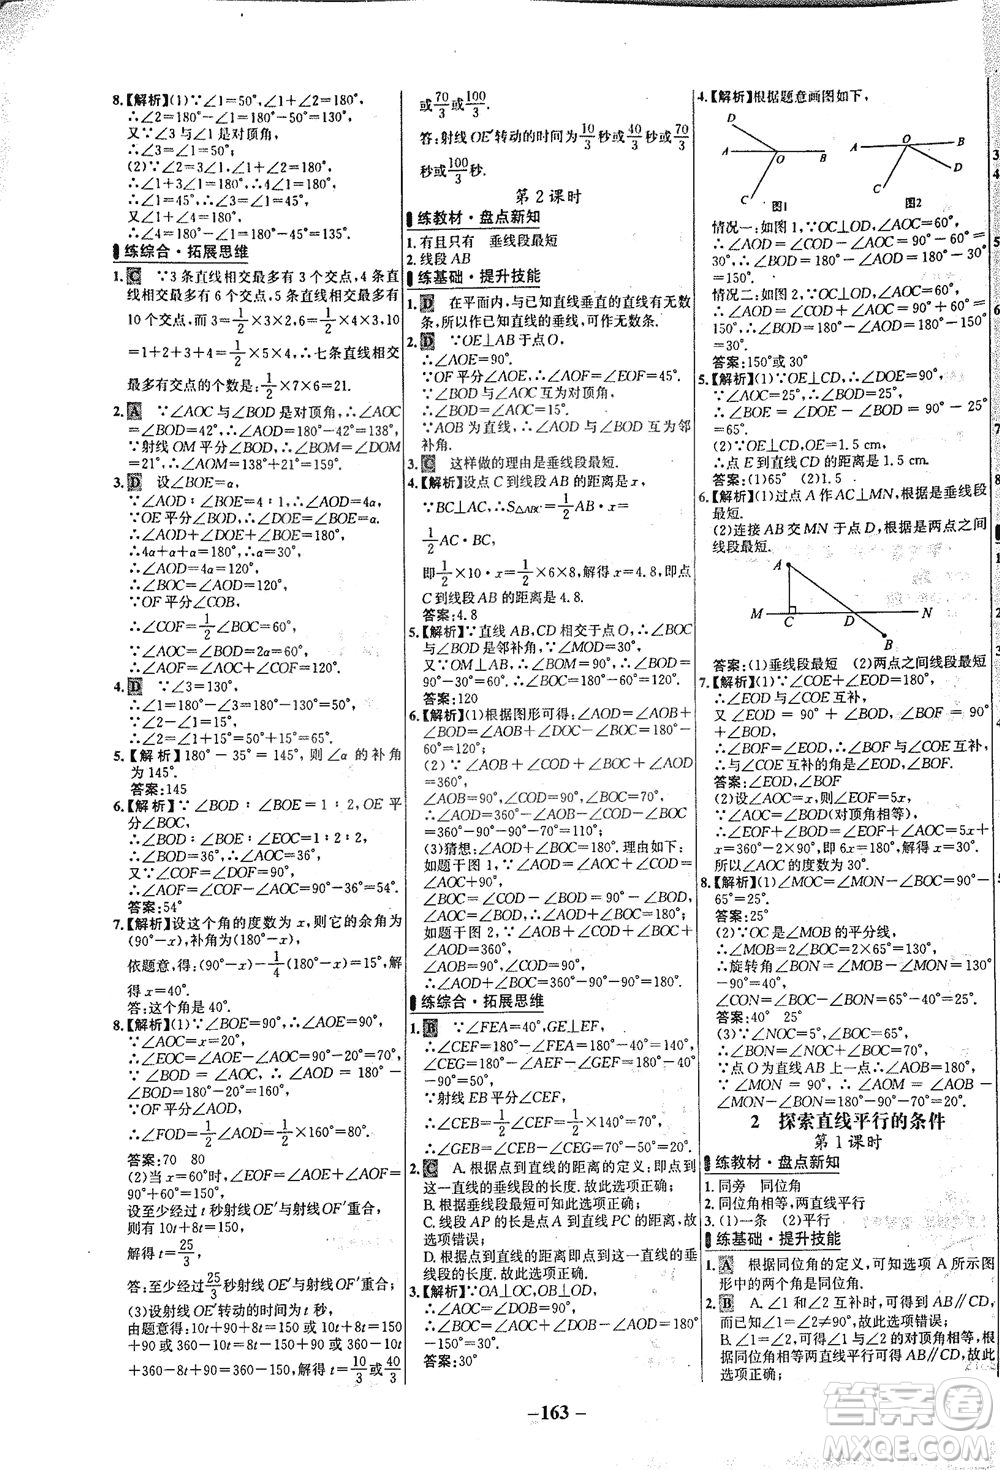 8.【解析】(1)∵∠1=50°,∠1+∠2=180°,
∴∠2=180°-∠1=180°-50°=130°.
又∵∠3与∠1是对顶角,
∴∠3=∠1=50°;
(2)∵∠2=3∠1,∠1+∠2=180°,
∴∠1+3∠1=180°,
∴∠1=45°,∴∠3=∠1=45°,
又∵∠3+∠4=180°,
∴∠4=180°-∠3=180°-45°=135°.
练综合·拓展思维
1.C ∵3条直线相交最多有3个交点,4条
直线相交最多有6个交点,5条直线相交最多有
10个交点,而3=1/2×3×2,6=1/2×4×3,10
=1+2+3+4=1/2×5×4,∴七条直线相交
最多有交点的个数是:1/2×7×6=21.
2.A ∵∠AOC与∠BOD是对顶角,
∴∠BOD=42°,∴∠AOD=180°-42°=138°,
∵射线OM平分∠BOD,∴∠BOM=∠DOM
=21°,∴∠AOM=138°+21°=159°.
3.D 设∠BOE=α,
∵∠AOD:∠BOE=4:1,∴∠AOD=4α,
∵OE平分∠BOD,∴∠DOE=∠BOE=α.
∴∠AOD+∠DOE+∠BOE=180°,
∴4α+α+α=180°,∴α=30°,
∴∠AOD=4α=120°,
∴∠BOC=∠AOD=120°,
∵OF平分∠COB,
∴∠COF=1/2∠BOC=60°,
∵∠AOC=∠BOD=2α=60°,
∴∠AOF=∠AOC+∠COF=120°.
4.D ∵∠3=130°,
∴∠1=180°-∠3=180°-130°=50°,
∴∠2=∠1+15°=50°+15°=65°.
5.【解析】180°-35°=145°,则∠α的补角
为145°.
答案:145
6.【解析】∵∠BOD:∠BOE=1:2,OE平
分∠BOC,
∴∠BOD:∠BOE:∠EOC=1:2:2,
∴∠BOD=36°,∴∠AOC=36°,
又∵∠COF=90°,
∴∠AOF=∠COF-∠AOC=90°-36°=54°
答案:54°
7.【解析】设这个角的度数为x,则它的余角为
(90°-x),补角为(180°-x),
依题意,得:(90°-x)-1/4(180°-x)=15°,解
得x=40°.
答:这个角是40°.
8.【解析】(1)∵∠BOE=90°,∴∠AOE=90°.
∵∠AOC=x=20°,
∴∠EOC=∠AOE-∠AOC=90°-20°=70°.
∵∠BOD=∠AOC,∴∠BOD=20°,
∴∠AOD=180°-20°=160°.
∵OF平分∠AOD,
∴∠FOD=1/2∠AOD=1/2×160°=80°.
答案:70 80
(2)当x=60°时,∠EOF=∠AOF+∠AOE=
60°+90°=150°.
设至少经过t秒射线OE′与射线OF′重合;
则有10t+8t=360-150,
解得t=35/3.
答:至少经过35/3秒射线OE′与射线OF′重合;
(3)设射线OE′转动的时间为t秒,
由题意得:10t+90+8t=150或10t+8t=150
+90或360-10t=8t-150+90或360-10t
+360-8t=90+150,解得t=10/3或40/3
或70/3或100/3.
答:射线OE′转动的时间为10/3秒或40/3秒或70/3
秒或100/3秒.
第2课时
练教材·盘点新知
1.有且只有 垂线段最短
2.线段AB
练基础·提升技能
1.D 在平面内,与已知直线垂直的直线有无数
条,所以作已知直线的垂线,可作无数条.
2.D ∵OE⊥AB于点O,
∴∠AOE=90°.
∵OF平分∠AOE,∴∠AOF=∠EOF=45°.
∵∠BOD与∠AOC互为对顶角,
∴∠BOD=∠AOC=15°.
∵AOB为直线,∴∠AOD与∠BOD互为邻
补角.
3.C 这样做的理由是垂线段最短.
4.【解析】设点C到线段AB的距离是x,
∵BC⊥AC,∴S△ABC=1/2AB·x=
1/2AC·BC,
即1/2×10·x=1/2×6×8,解得x=4.8,即点
C到线段AB的距离是4.8.
答案:4.8
5.【解析】∵直线AB,CD相交于点O,∴∠BOC
与∠BOD是邻补角,∵∠MOD=30°,
又∵OM⊥AB,∴∠BOD=90°-∠MOD=
90°-30°=60°,∴∠BOC=180°-60°=120°.
答案:120
6.【解析】(1)根据图形可得:∠AOD=∠AOB+
∠BOD=90°+∠BOD,∠BOC=∠DOC-
∠BOD=90°-∠BOD,∴∠AOD+∠BOC=180°;
(2)∵∠AOB+∠COD+∠BOC+∠AOD
=360°,
∠AOB=90°,∠COD=90°,∠BOC=70°,
∴∠AOD=360°-∠AOB-∠COD-∠BOC
=360°-90°-90°-70°=110°;
(3)猜想:∠AOD+∠BOC=180°.理由如下:
如题干图1,∵∠AOD=∠AOC+∠COD=
∠AOC+90°,∠BOC=∠BOD-∠COD=
∠BOD-90°,∴∠AOD+∠BOC=180°;
如题干图2,∵∠AOB+∠BOC+∠COD+
∠AOD=360°,
∴∠AOD+∠BOC=360°-90°-90°=180°.
练综合·拓展思维
1.B ∵∠FEA=40°,GE⊥EF,
∴∠CEF=180°-∠FEA=180°-40°=140°,
∠CEG=180°-∠AEF-∠GEF=180°-40°
-90°=50°.
∵射线EB平分∠CEF,
∴∠CEB=1/2∠CEF=1/2×140°=70°,
∴∠GEB=∠CEB-∠CEG=70°-50°=20°.
2.C A.根据点到直线的距离的定义:即点到
这一直线的垂线段的长度.故此选项正确;
B.根据垂线段最短可知此选项正确;
C.线段AP的长是点A到直线PC的距离,故
此选项错误;
D.根据点到直线的距离的定义:即点到这一直线的垂
线段的长度.故此选项正确.
3.【解析】∵OA⊥OC,OB⊥OD,
∴∠AOC=∠DOB=90°,
∵∠AOB=150°,∴∠BOC=∠AOD=180°
-150°=30°.
答案:30°
4.【解析】根据题意画图如下,
D A O B C 图1
A O B D C 图2
情况一:如图1,∵OC⊥OD,∠AOC=60°,
∴∠AOD=∠COD-∠AOC=90°-60°=30°,
∴∠BOD=180°-∠AOD=180°-30°
=150°.
情况二:如图2,∵OC⊥OD,∠AOC=60°,
∴∠AOD=∠COD+∠AOC=90°+60°=
150°,∴∠BOD=180°-∠AOD=180°-150°
=30°.
答案:150°或30°
5.【解析】(1)∵OE⊥CD,∴∠DOE=90°.
∵∠AOC=25°,∴∠BOD=∠AOC=25°,
∴∠BOE=∠DOE-∠BOD=90°-25°
=65°.
(2)∵OE⊥CD,OE=1.5 cm,
∴点E到直线CD的距离是1.5 cm.
答案:(1)65° (2)1.5
6.【解析】(1)过点A作AC⊥MN,根据是垂线段
最短.
(2)连接AB交MN于点D,根据是两点之间
线段最短.
A M C D N B
答案:(1)垂线段最短 (2)两点之间线段最短
7.【解析】(1)∵∠COE+∠EOD=180°,
∴∠EOD与∠COE互补,
又∠EOD=90°+∠BOD,∠BOF=90°
+∠BOD,
∴∠EOD=∠BOF,∴∠BOF与∠COE互补,
∴与∠COE互补的角是∠EOD,∠BOF.
答案:∠EOD,∠BOF
(2)设∠AOC=x,则∠EOF=5x,
∵∠AOC=∠BOD(对顶角相等),
∴∠EOF+∠BOD=∠EOF+∠AOC=5x+
x=360°-2×90°,即6x=180°,解得x=30°.
所以∠AOC的度数为30°.
8.【解析】(1)∠MOC=∠MON-∠BOC=90°-
65°=25°.
答案:25°
(2)∵OC是∠MOB的平分线,
∴∠MOB=2∠BOC=2×65°=130°,
∴旋转角∠BON=∠MOB-∠MON=
130°-90°=40°,
∠CON=∠BOC-∠BON=65°-40°=25°.
答案:40° 25°
(3)∵∠NOC=5°,∠BOC=65°,
∴∠BON=∠NOC+∠BOC=70°,
∵点O为直线AB上一点,∴∠AOB=180°,
∵∠MON=90°,∴∠AOM=∠AOB-
∠MON-∠BON=180°-90°-70°=20°.
2 探索直线平行的条件
第1课时
练教材·盘点新知
1.同旁 同位角
2.同位角相等,两直线平行
3.(1)一条 (2)平行
练基础·提升技能
1.A 根据同位角的定义,可知选项A所示图
形中的两个角是同位角.
2.B A.∠1和∠2互补时,可得到AB∥CD,
而已知∠1=∠2,故此选项错误;
B.∠1=∠2,可得∠1与∠2的对顶角相等,
根据同位角相等两直线平行可得AB∥CD,故
此选项正确;
-163-
答案圈
MXQE.COM